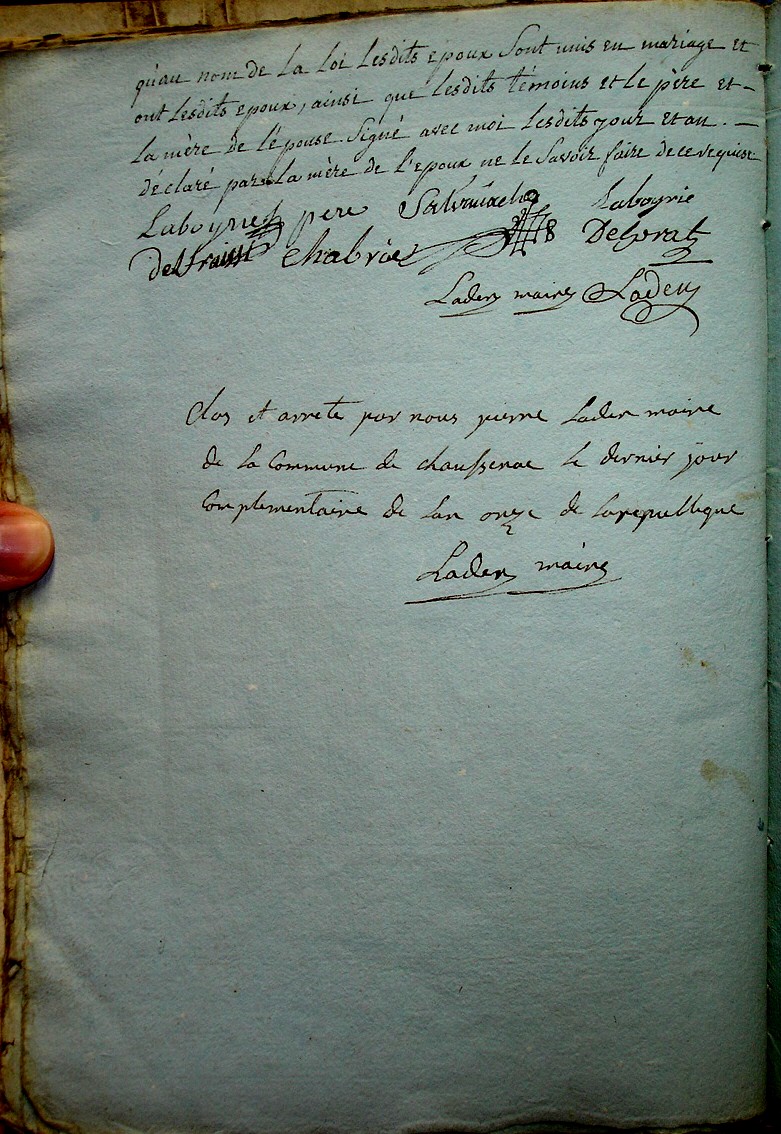 qu'au nom de la loi lesdits epoux sont unis en mariage et
ont lesdits epoux, ainsi que lesdits témoins et le père et
la mère de l'épouse signé avec moi lesdits jour et an. —
déclaré par la mère de l'epoux ne le savoir faire de ce requise
Laboyrie pere Laboyrie
Chabrier Delprat
Lader maire Lader
Clos et arreté par nous pierre Lader maire
de la Commune de chaussenac le dernier jour
Complementaire de lan onze de la republique
Lader maire